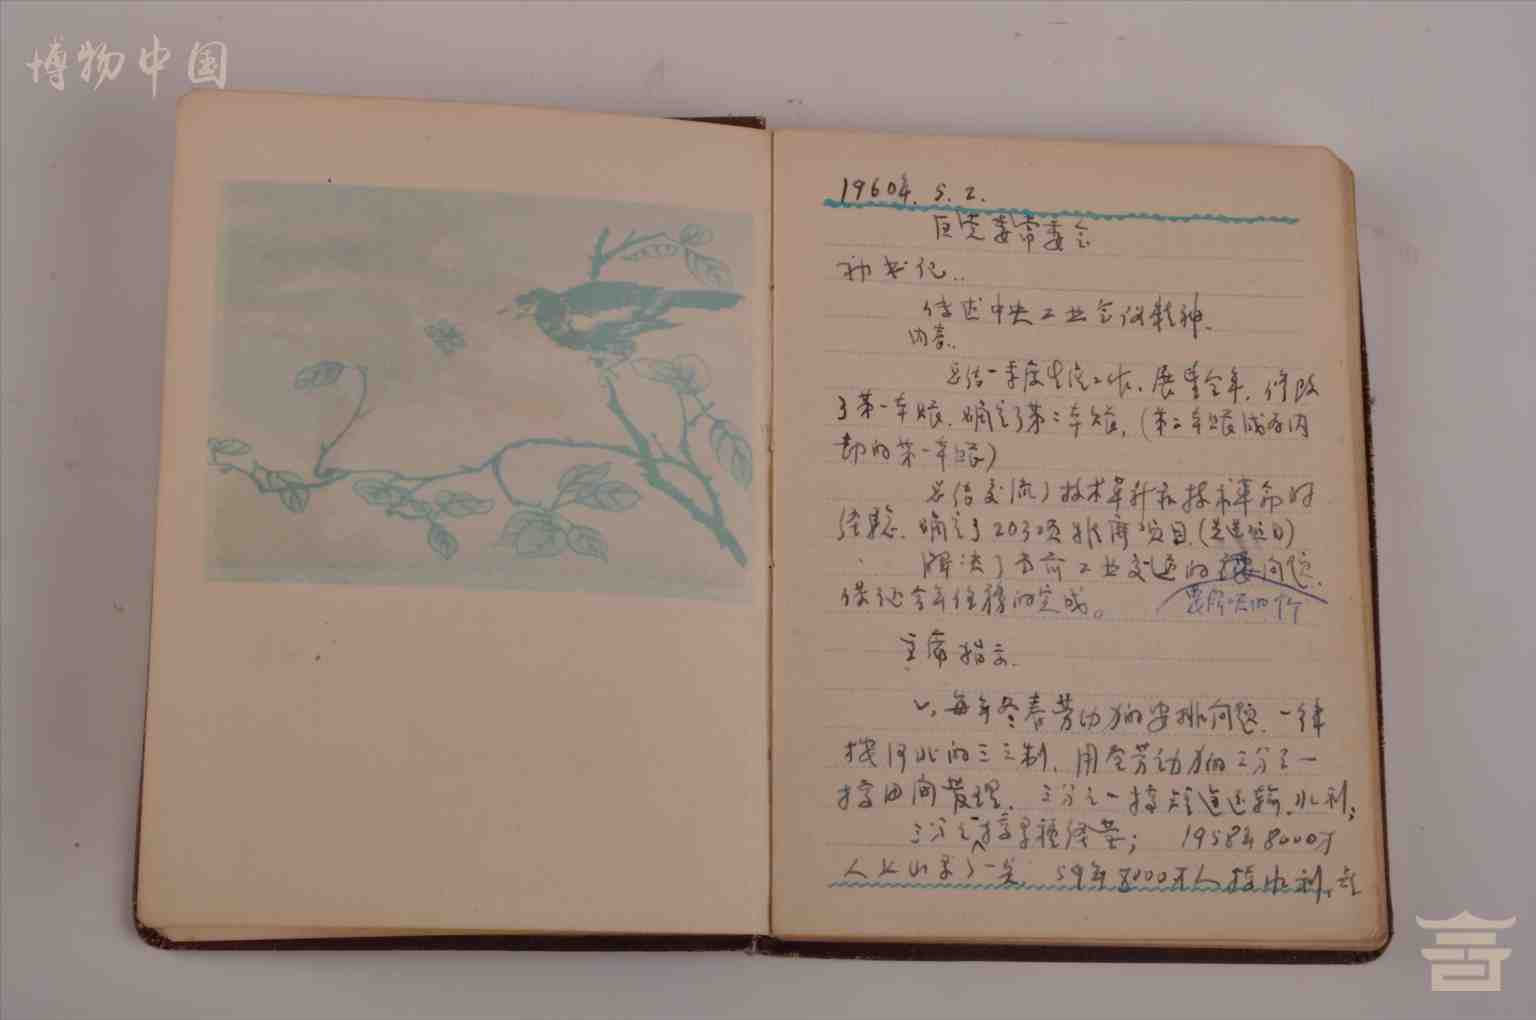 博物中国
1960年.5.2.
区党委常委会
书记..
传达中央工业会议精神.
内容..
总结一季度生产工作.展望全年.修改
了第一本账.确定了第二本账.(第二本账成为内
部的第一本账)
总结交流了技术革新和技术革命的
经验.确定了203项推广项目.(先进项目)
解决了当前工业交通的主要问题.
保证全年任务的完成。
主席指示.
每年冬春劳动力的安排问题.一律
按河北的三三制.用全劳动力的三分之一
搞田间管理.三分之一搞短途运输.水利;
三分之一搞多种经营; 1958年8000万
人上山 59年8000万人搞水利.